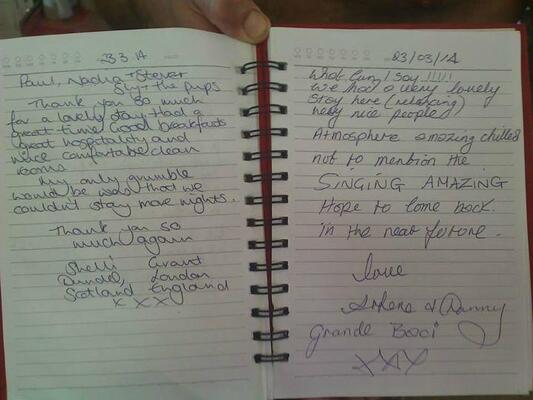 3 3 14
Paul, Nadia + Steve
Sly + the pups
Thank you so much
for a lovely stay. Had a
great time. Good breakfasts
great hospitality and
nice comfortable clean
rooms
My only grumble
would be was that we
couldn't stay more nights.
Thank you so
much again
Shelli Grant
Dundee, London
Scotland England
x xxx
23/03/14
What fun, I say !!!!!
We had a very lovely
stay here (relaxing)
very nice people
Atmosphere amazing chilled
not to mention the
SINGING AMAZING
Hope to come back.
in the near future.
love
Danny
Grande Baci
XXX